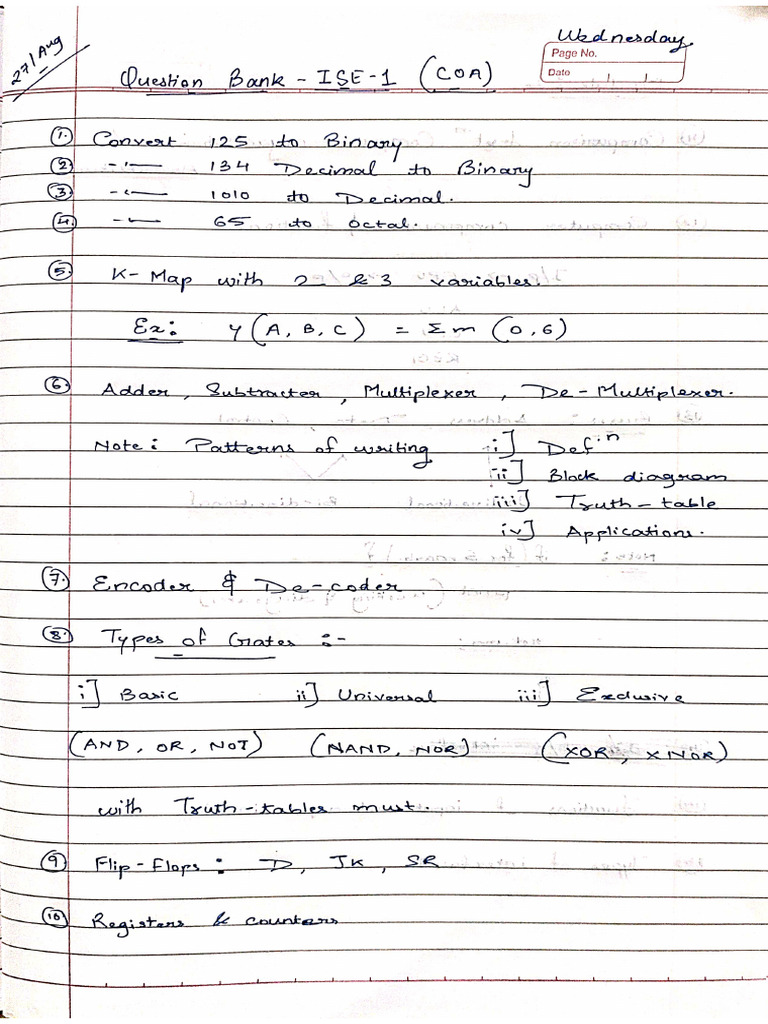 27/Aug
Wednesday
Page No.
Date
Question Bank - ISE-1 (COA)
① Convert 125 to Binary
② -"- 134 Decimal to Binary
③ -"- 1010 to Decimal.
④ -"- 65 to octal.
⑤ K-Map with 2 & 3 variables.
Ex: Y(A, B, C) = Σm (0,6)
⑥ Adder, Subtracter, Multiplexer, De-Multiplexer.
Note: Patterns of writing i] Def.ⁿ
ii] Block diagram
iii] Truth-table
iv] Applications.
⑦ Encoder & De-coder
⑧ Types of Gates :-
i] Basic ii] Universal iii] Exclusive
(AND, OR, NOT) (NAND, NOR) (XOR, XNOR)
with Truth-tables must.
⑨ Flip-Flops: D, JK, SR
⑩ Registers & counters